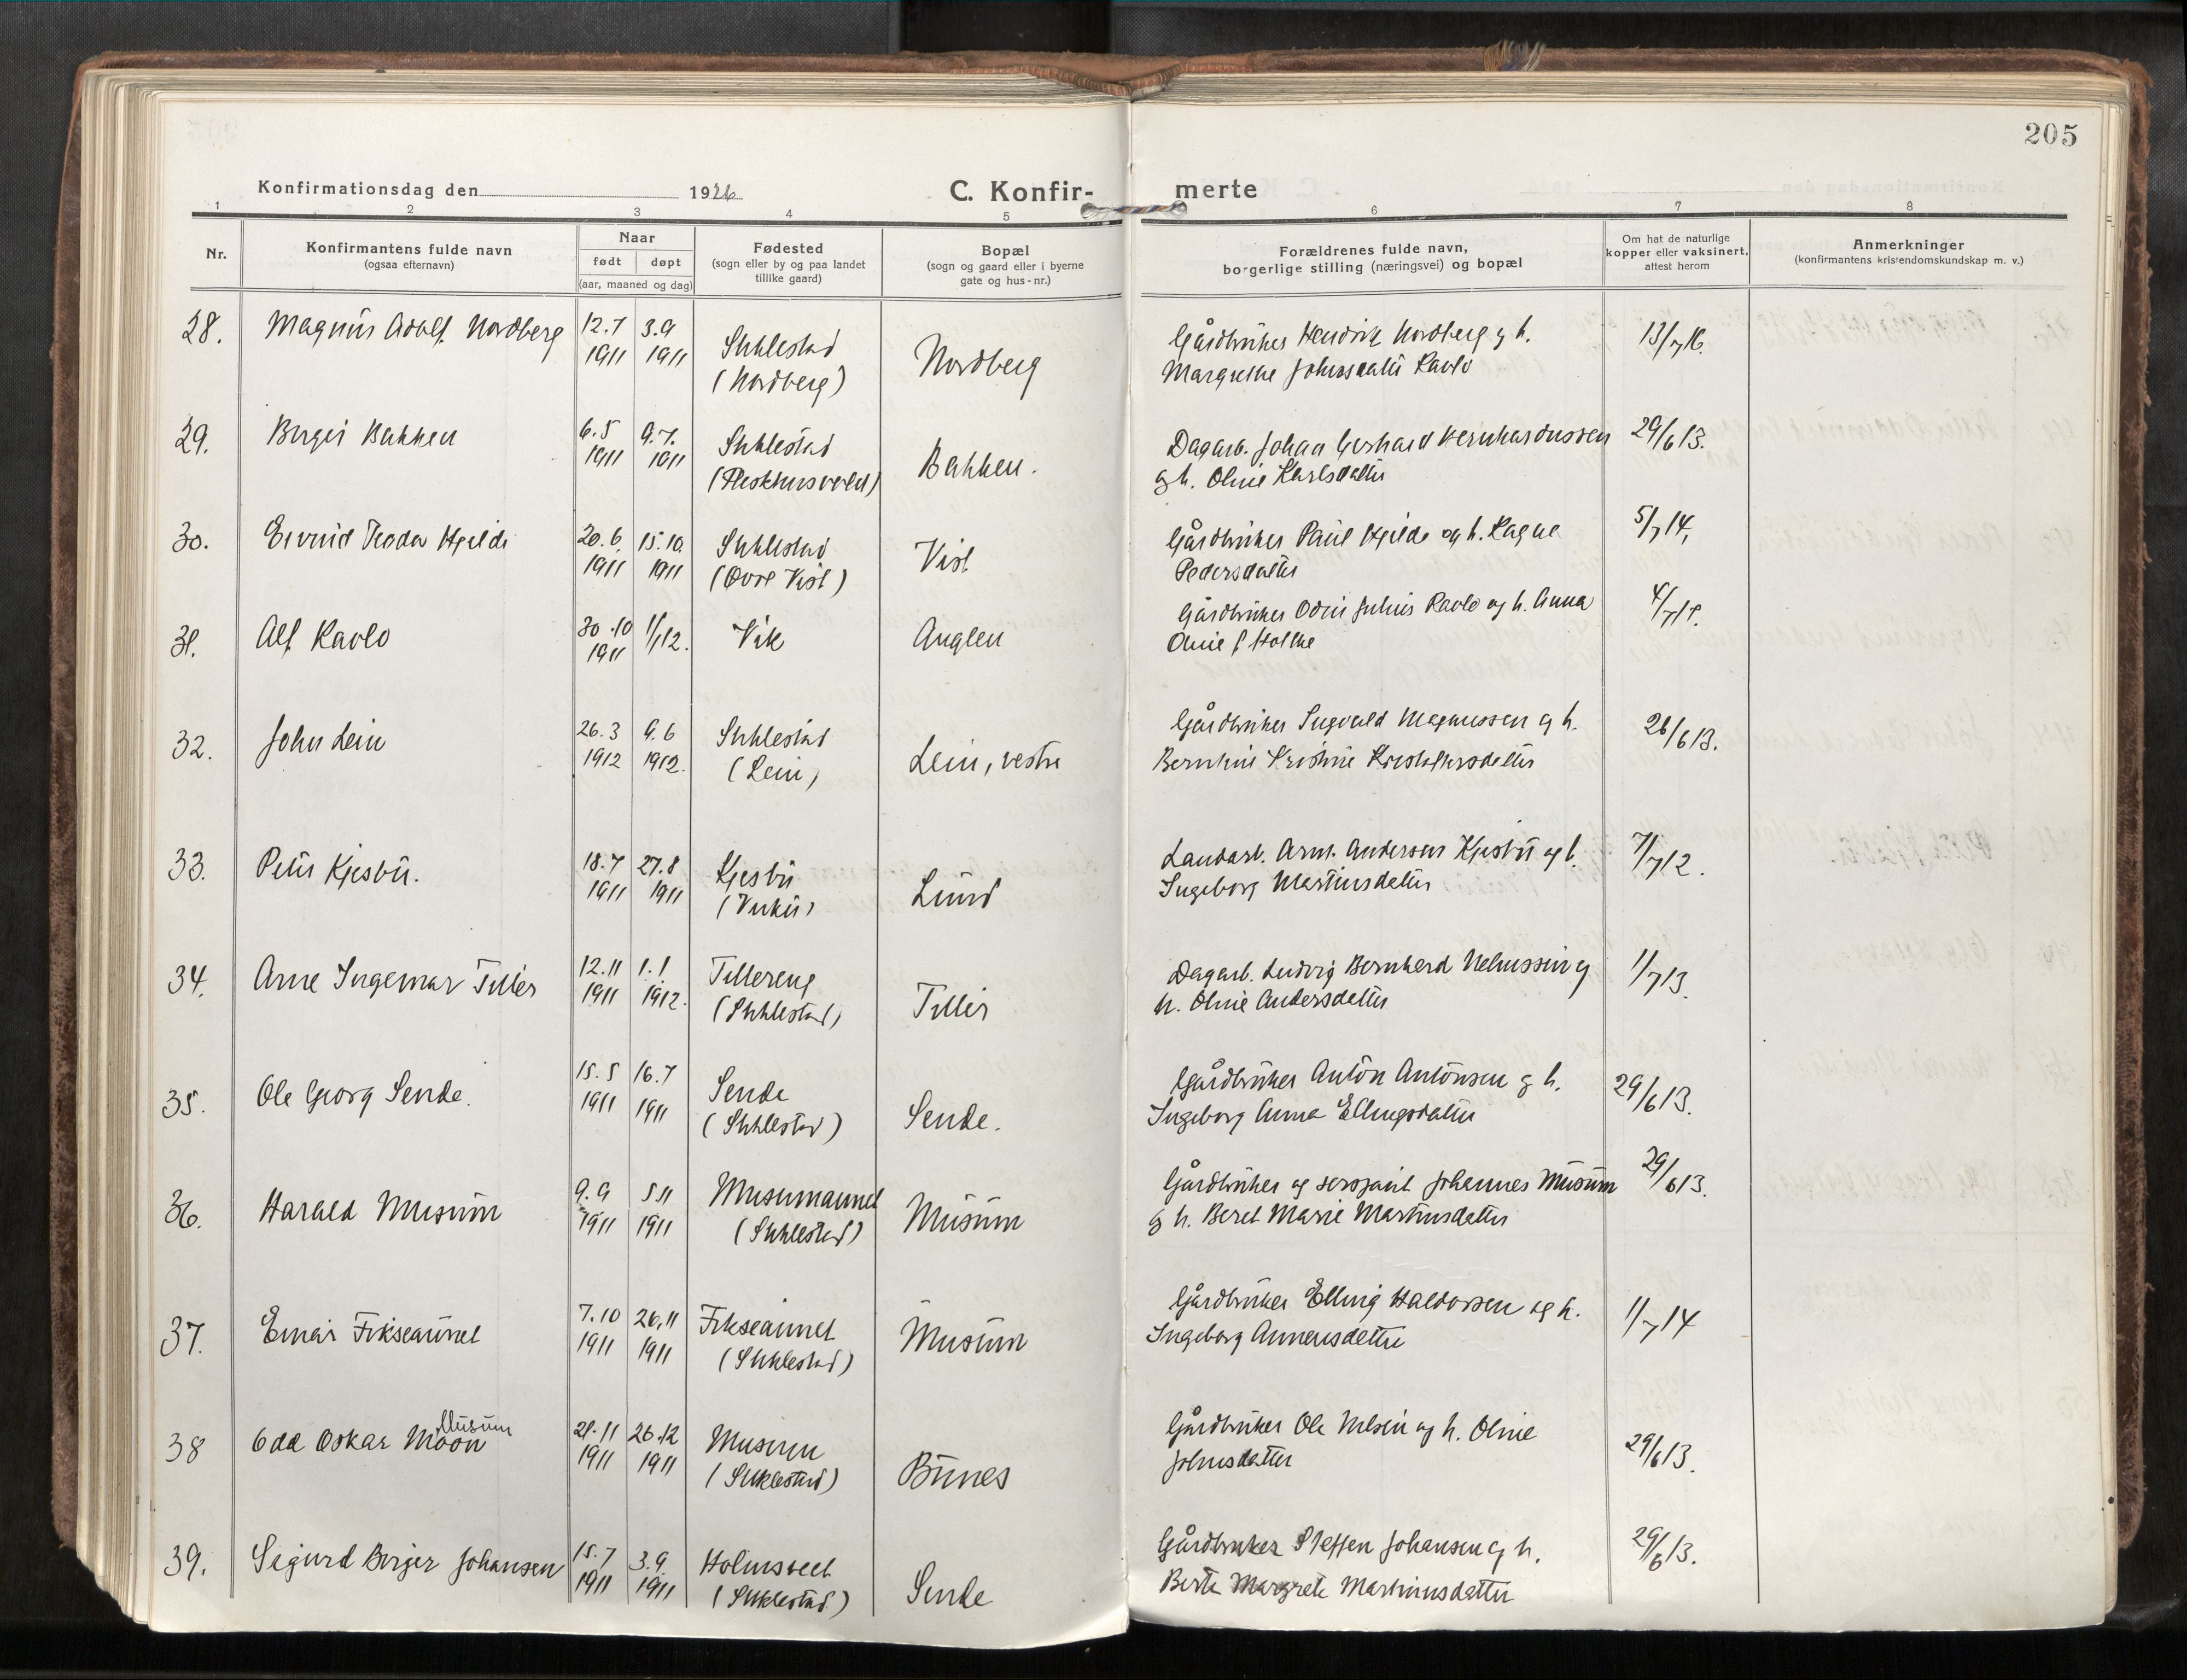 205
Konfirmationsdag den 1926 C. Konfir- merte
1 2 3 4 5 6 7 8
Nr.
Konfirmantens fulde navn
(ogsaa efternavn)
Naar
født døpt
(aar, maaned og dag)
Fødested
(sogn eller by og paa landet
tillike gaard)
Bopæl
(sogn og gaard eller i byerne
gate og hus-nr.)
Forældrenes fulde navn,
borgerlige stilling (næringsvei) og bopæl
Om hat de naturlige
kopper eller vaksinert,
attest herom
Anmerkninger
(konfirmantens kristendomskundskap m. v.)
28. Magnus Adolf Nordberg 12.7 3.9 Gårdbruker Hendrik Nordberg og h. 13/7 16.
1911 1911 Stiklestad
(Nordberg) Nordberg Margrethe Johnsdatter Ravlo
29. Birger Bakken 6.5 9.7. Dagarb. Johan Gerhard Bernhardussen 29/6 13.
1911 1911 Stiklestad Bakken. og h. Oline Karlsdatter
30. Eivind Teodor Hjelde 20.6 15.10 Gårdbruker Paul Hjelde og h. Ragna 5/7 14,
1911 1911 Stiklestad
(Øvre Vist) Vist Pedersdatter
31. Alf Ravlo 30.10 1/1 12. Vik Auglen Gårdbruker Odin Julius Ravlo og h. Anna
1911 Oline
32. John Lein 26.3 9.6 Stiklestad Gårdbruker Ingvald Magnussen og h. 26/6 13.
1912 1912. (Lein) Lein, vestre Bernhine Kristine Kristofersdatter
33. Peter Kjesbu. 18.7 27.8 Kjesbu Landarb. Arnt Andersen Kjesbu og h. 7/7 12.
1911 1911 (Vuku) Lund Ingeborg Martinsdatter
34. Arne Ingemar Tiller 12.11 1.1 Tillereng Dagarb. Ludvig Bernhard og 1/7 13.
1911 1912. (Stiklestad) Tiller h. Oline Andersdatter
35. Ole Georg Sende. 15.5 16.7 Sende Gårdbruker Anton Antonsen og h. 29/6 13.
1911 1911 (Stiklestad) Sende. Ingeborg Anna Ellingsdatter
36. Harald Musum 9.9 5.11 Musumaunet Gårdbruker og sersjant Johannes Musum 29/6 13.
1911 1911 (Stiklestad) Musum og h. Beret Marie Martinusdatter
37. Einar Fikseaunet 7.10 26.11 Fikseaunet Gårdbruker Elling Haldorsen og h. 1/7 14
1911 1911 (Stiklestad) Musum Ingeborg Annensdatter
Musum
38 Odd Oskar Moon 21.11 26.12 Musum Gårdbruker Ole Nilsen og h. Oline 29/6 13.
1911 1911 (Stiklestad) Bunes Johnsdatter
39. Sigurd Birger Johansen 15.7 3.9. Holmsveet Gårdbruker Steffen Johansen og h. 29/6 13.
1911 1911 (Stiklestad) Sende Berte Margrete Martinusdatter